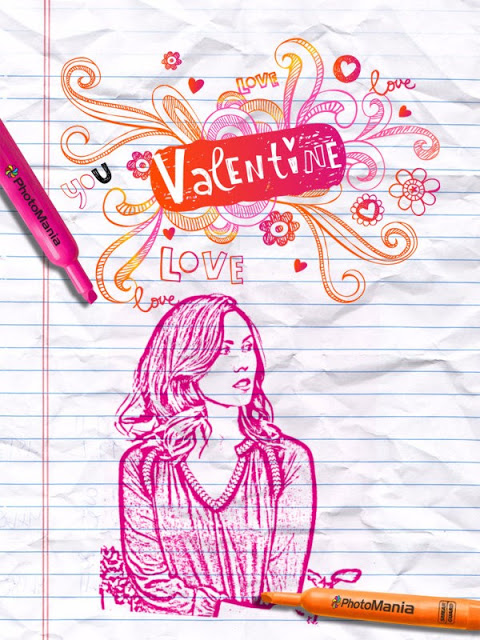 LOVE
love
VALENTINE
YOU
LOVE
love
PhotoMania
PhotoMania